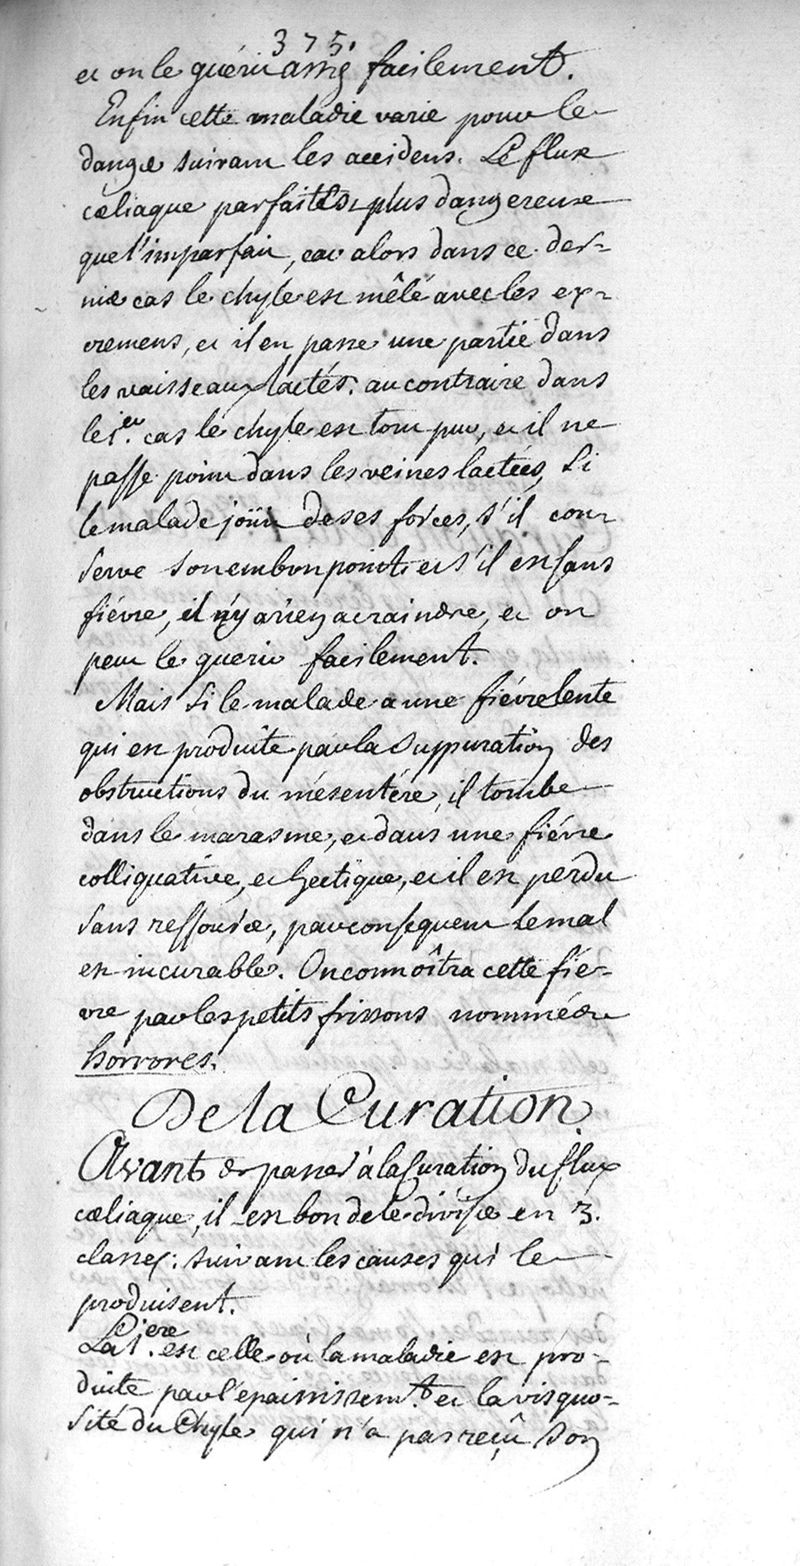 375.
et on le guérit assés facilement.
Enfin cette maladie varie pour le
danger suivant les accidens. Le flux
cœliaque parfait est plus dangereux
que l'imparfait, car alors dans ce der-
nier cas le chyle est mêlé avec les ex-
cremens, et il en passe une partie dans
les vaisseaux lactés: au contraire dans
le 1.er cas le chyle est tout pur, et il ne
passe point dans les veines lactées, Si
le malade joüit de ses forces, s'il con-
serve son embonpoint et s'il est sans
fiévre, il n'y a rien a craindre, et on
peut le guerir facilement.
Mais si le malade a une fiévre lente
qui est produite par la suppuration des
obstructions du mésentére, il tombe
dans le marasme, et dans une fiévre
colliquative, et hectique, et il est perdu
sans ressource, par consequent le mal
est incurable. On connoîtra cette fié-
vre par les petits frissons nommés
horrores.
De la Curation.
Avant de passer à la Curation du flux
cœliaque, il est bon de le diviser en 3.
classes: suivant les causes qui le
produisent.
La 1.ere est celle où la maladie est pro-
duite par l'epaississem.t et la visquo-
sité du Chyle qui n'a pas reçû son